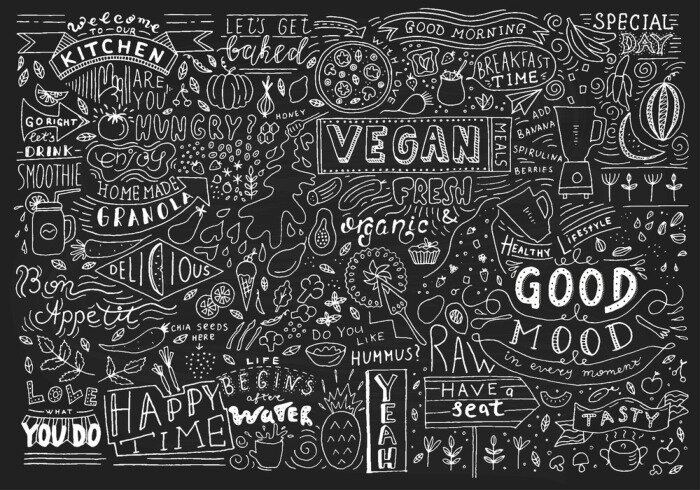 welcome
TO OUR
KITCHEN
LET'S GET
baked
GOOD MORNING
SPECIAL
DAY
ARE
YOU
HUNGRY?
BREAKFAST
TIME
GO RIGHT
let's
DRINK
SMOOTHIE
HONEY
VEGAN
MEALS
ADD
BANANA
SPIRULINA
BERRIES
enjoy
HOMEMADE
GRANOLA
FRESH
&
organic
DELICIOUS
HEALTHY LIFESTYLE
GOOD
MOOD
in every moment
Bon
Appétit
CHIA SEEDS
HERE
DO YOU
LIKE
HUMMUS?
RAW
LIFE
BEGINS
after
WATER
HAVE a
seat
YEAH
TASTY
LOLE
WHAT
YOU DO
HAPPY
TIME